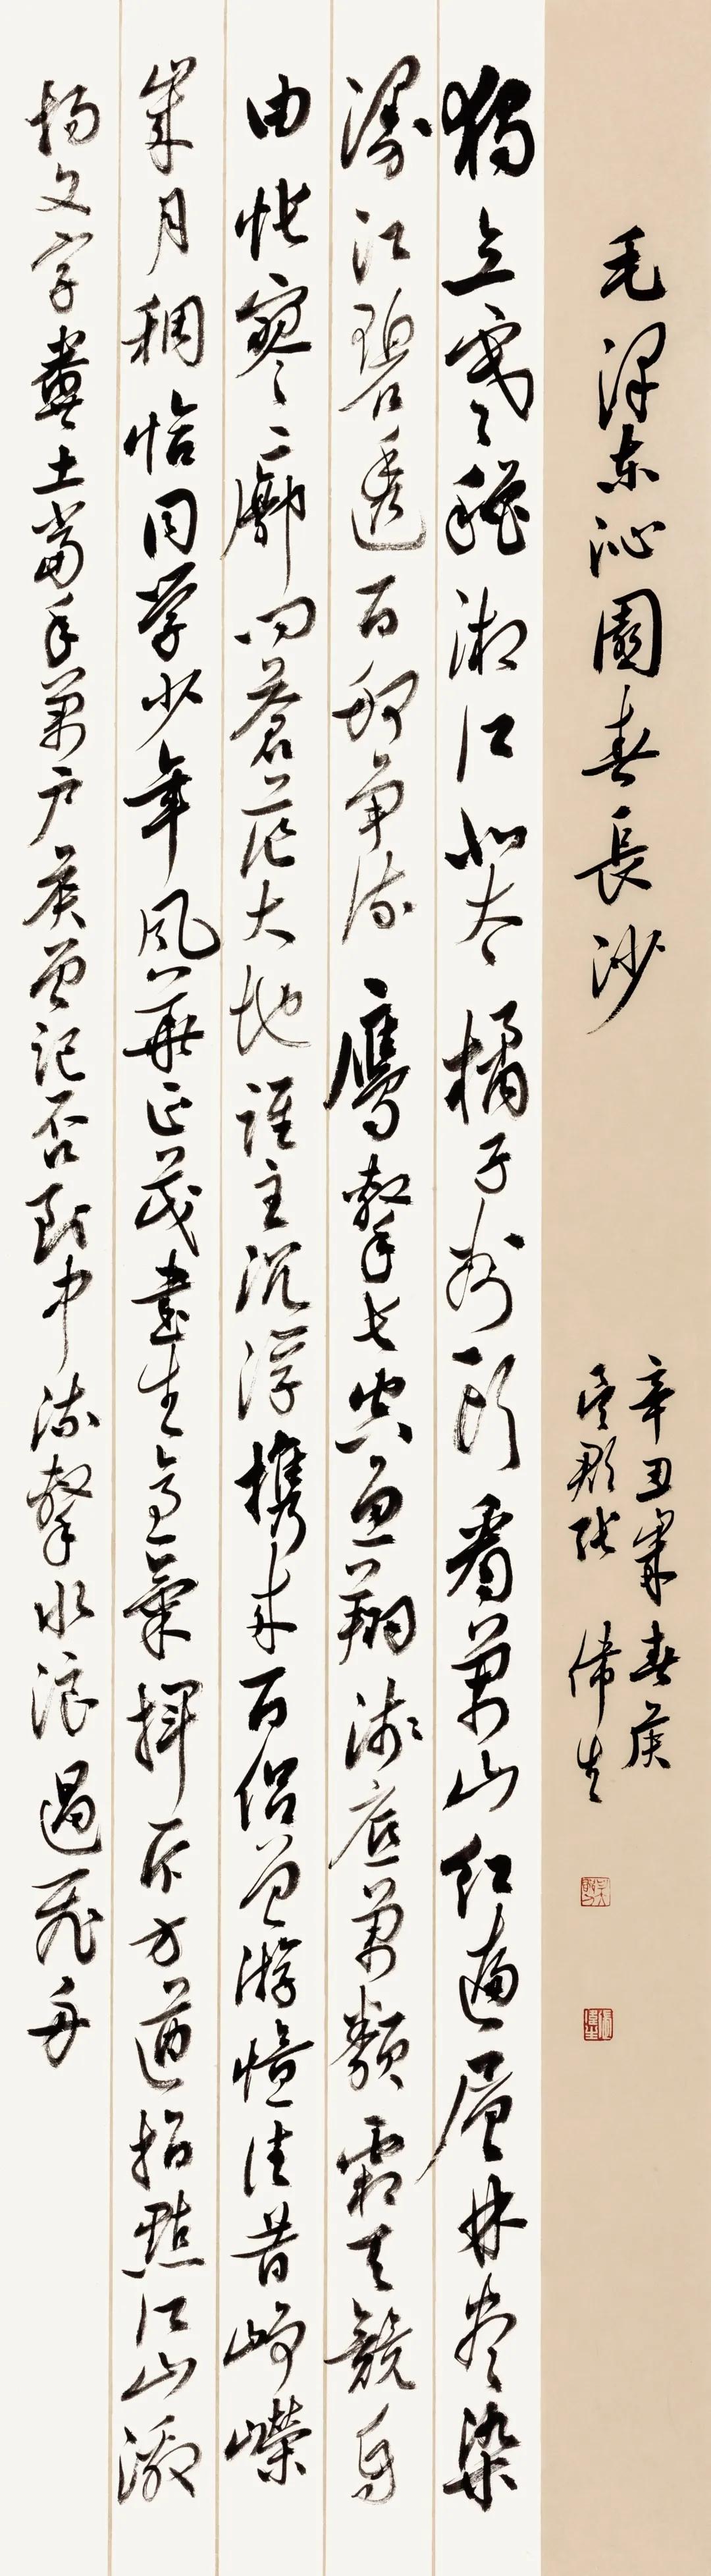 毛澤東沁園春長沙
辛丑嵗春矦
吴郡張偉生
獨立寒秋湘江北去橘子州頭看萬山紅遍層林盡染
漫江碧透百舸争流鷹擊長空魚翔淺底萬類霜天競自
由悵寥廓問蒼茫大地誰主沉浮携来百侣曾游憶往昔崢嶸
嵗月稠恰同學少年風華正茂書生意氣揮斥方遒指點江山激
揚文字糞土當年萬户矦曾記否到中流擊水浪遏飛舟
張偉生